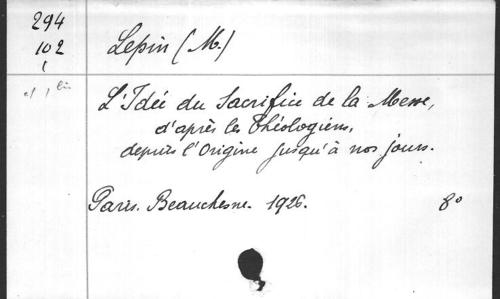 294
102
1
Lepin (M.)
et 1 bis
L'Idée du Sacrifice de la Messe,
d'après les Théologiens,
depuis l'Origine jusqu'à nos jours.
Paris. Beauchesne. 1926. 8°